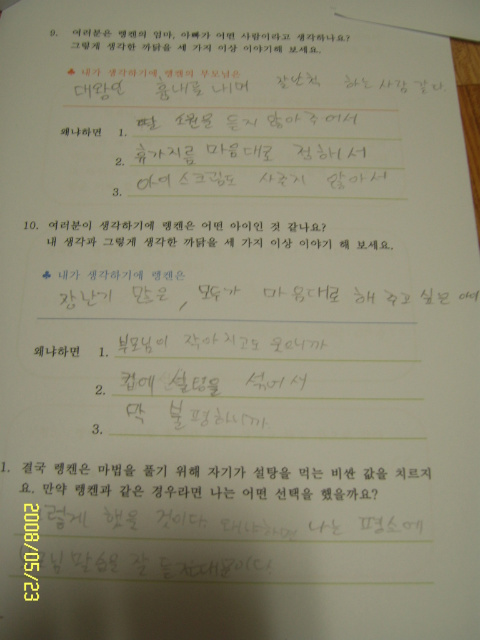 9. 여러분은 랭켄의 엄마, 아빠가 어떤 사람이라고 생각하나요?
그렇게 생각한 까닭을 세 가지 이상 이야기해 보세요.
♣ 내가 생각하기에 랭켄의 부모님은
대왕인 흉내를 내며 잘난척 하는 사람 같다.
왜냐하면 1. 딸 소원을 듣지 않아 주어서
2. 휴가지를 마음대로 정해서
3. 아이스크림도 사주지 않아서
10. 여러분이 생각하기에 랭켄은 어떤 아이인 것 같나요?
내 생각과 그렇게 생각한 까닭을 세 가지 이상 이야기 해 보세요.
♣ 내가 생각하기에 랭켄은
장난기 많은, 모두가 마음대로 해 주고 싶은
왜냐하면 1. 부모님이 작아지고도 웃으니까
2. 컵에 설탕을 섞어서
3. 막 불평하니까.
1. 결국 랭켄은 마법을 풀기 위해 자기가 설탕을 먹는 비싼 값을 치르지
요. 만약 랭켄과 같은 경우라면 나는 어떤 선택을 했을까요?
렇게 했을 것이다. 왜냐하면 나는 평소에
님 말씀을 잘 듣
2008/05/23